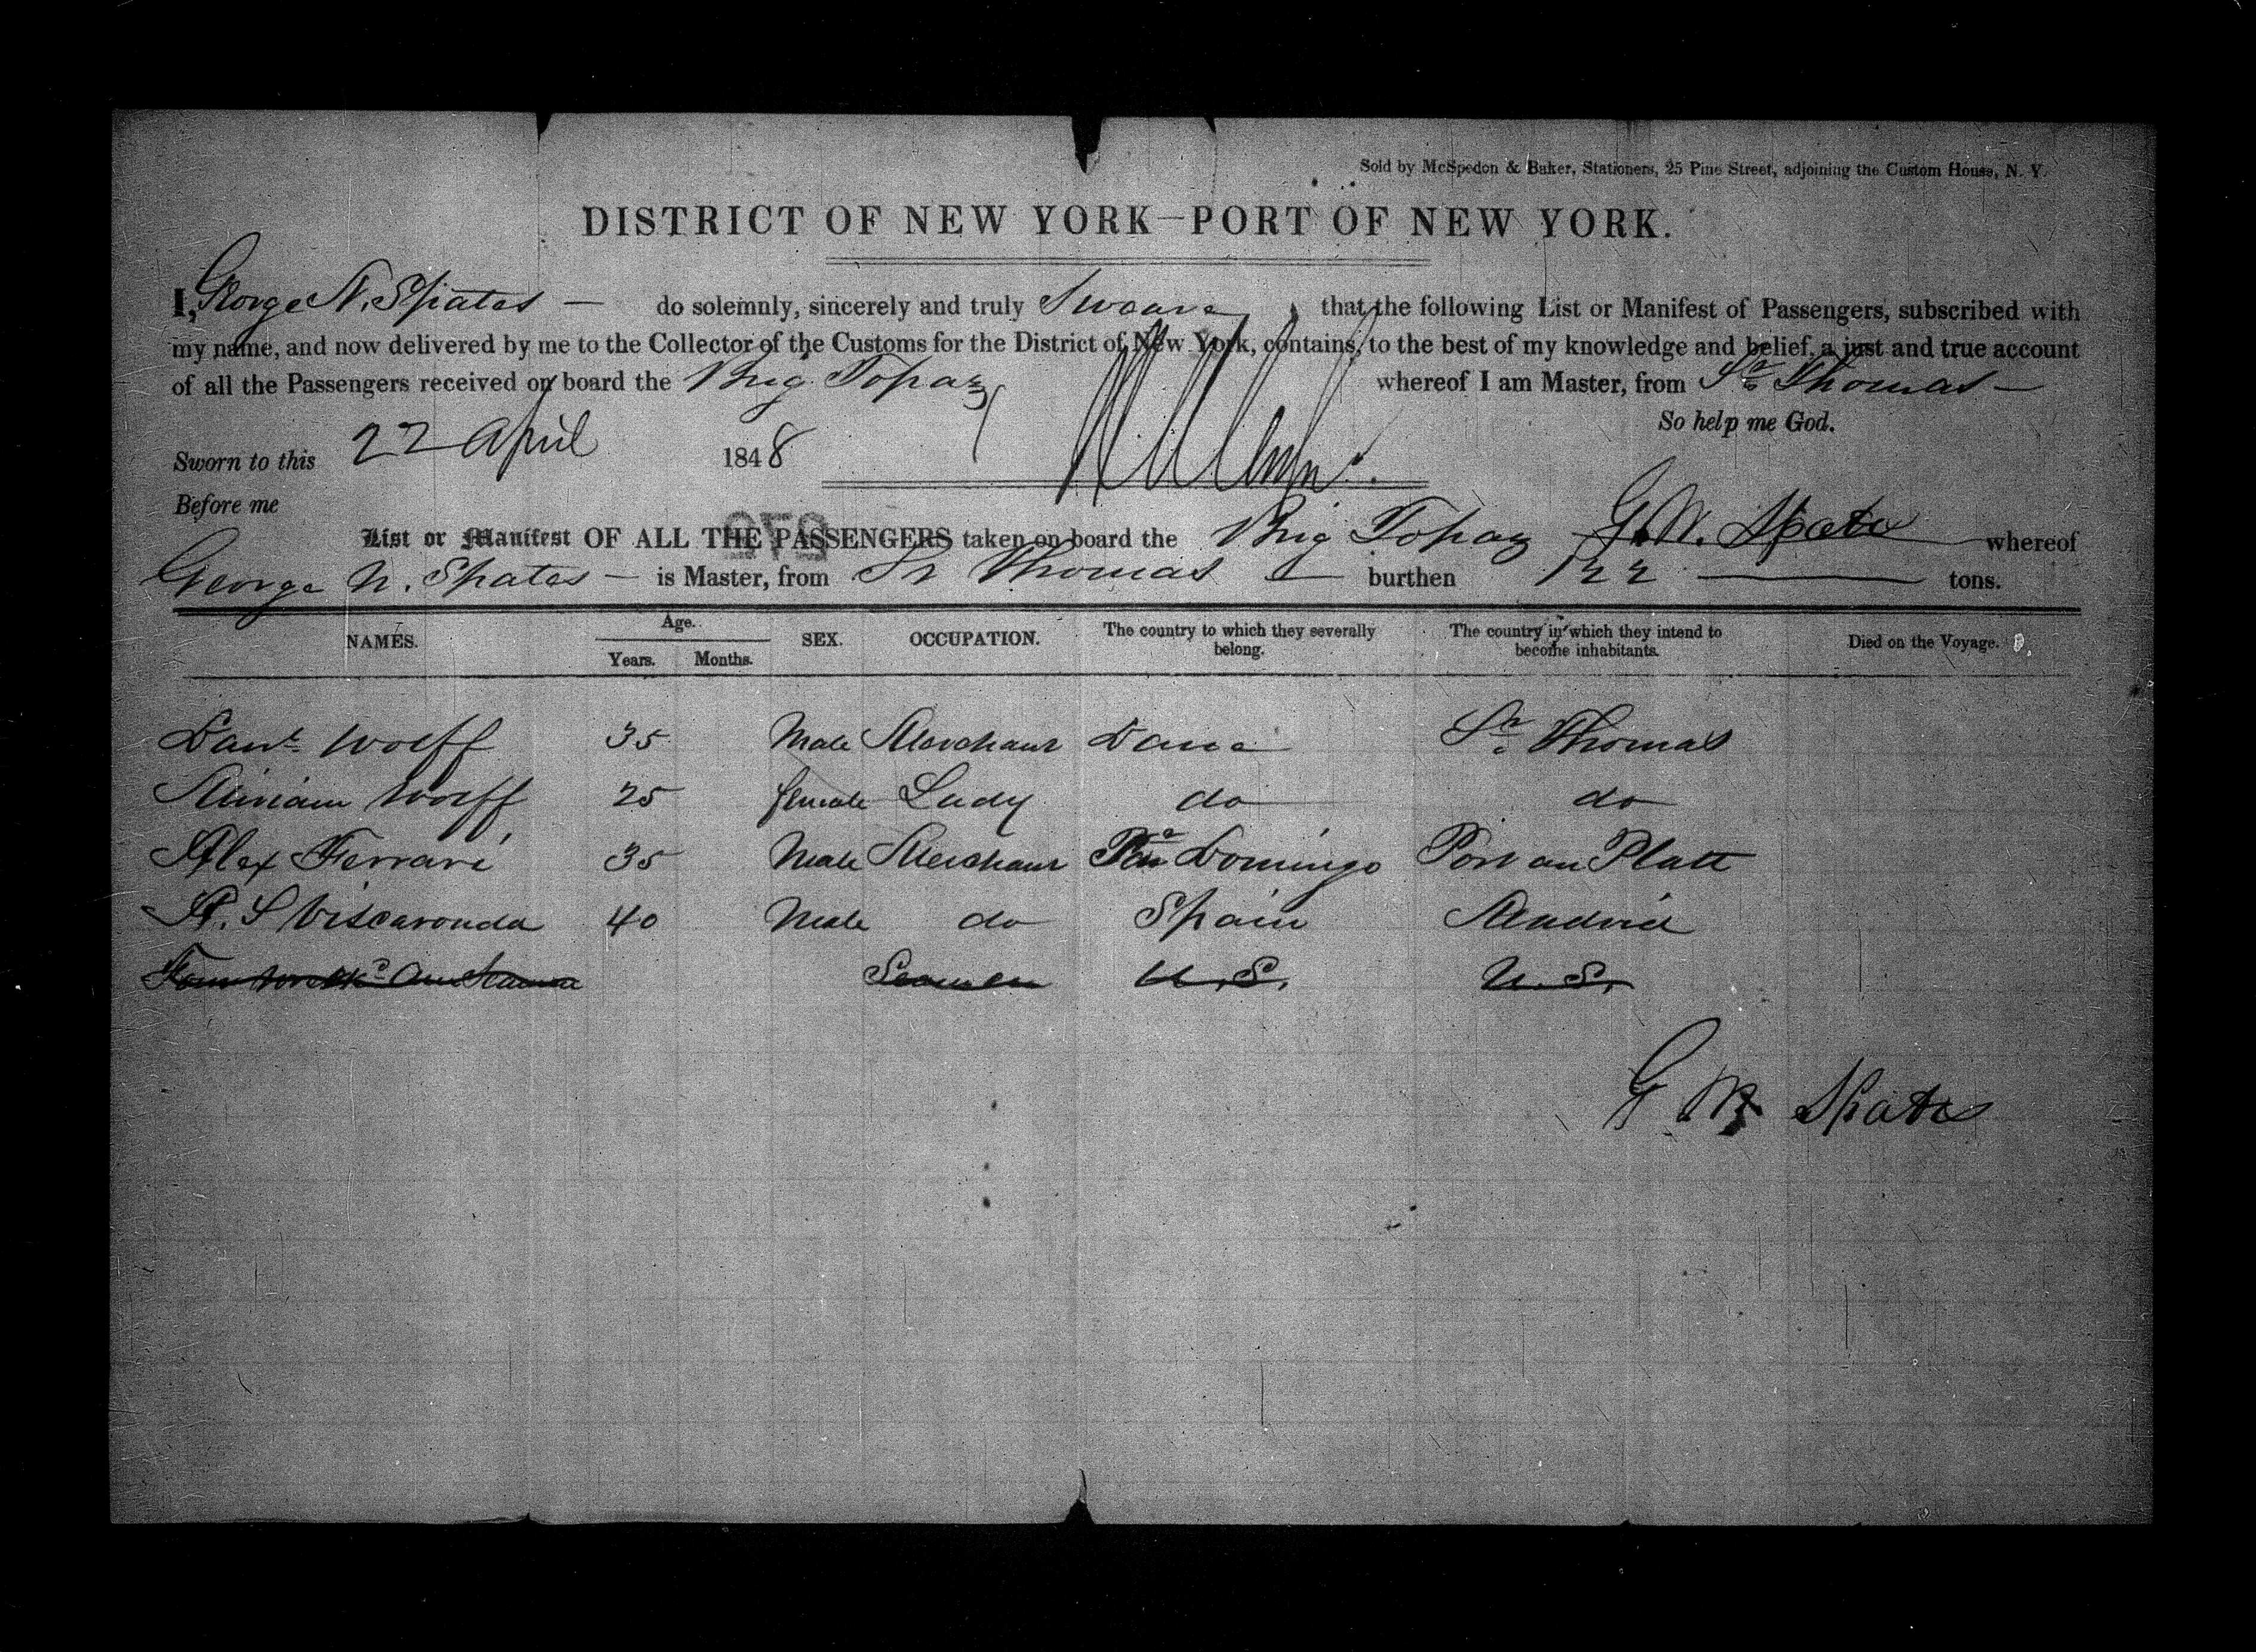 Sold by McSpedon & Baker, Stationers, 25 Pine Street, adjoining the Custom House, N. Y.
DISTRICT OF NEW YORK—PORT OF NEW YORK.
I, George N. Spates — do solemnly, sincerely and truly Swear that the following List or Manifest of Passengers, subscribed with
my name, and now delivered by me to the Collector of the Customs for the District of New York, contains, to the best of my knowledge and belief, a just and true account
of all the Passengers received on board the Brig Topaz whereof I am Master, from St. Thomas —
So help me God.
Sworn to this 22 April 1848
Before me
List or Manifest OF ALL THE PASSENGERS taken on board the Brig Topaz G. N. Spates whereof
George N. Spates — is Master, from St Thomas — burthen 122 — tons.
NAMES. Age. Years. Months. SEX. OCCUPATION. The country to which they severally belong. The country in which they intend to become inhabitants. Died on the Voyage.
Danl. Wolff 35 Male Merchant Dane St. Thomas
Miriam Wolff 25 female Lady do do
Alex Ferrari 35 Male Merchant Domingo Port au Platt
A. S Viscaronda 40 Male do Spain Madrid
Seamen U.S. U.S.
G N Spates